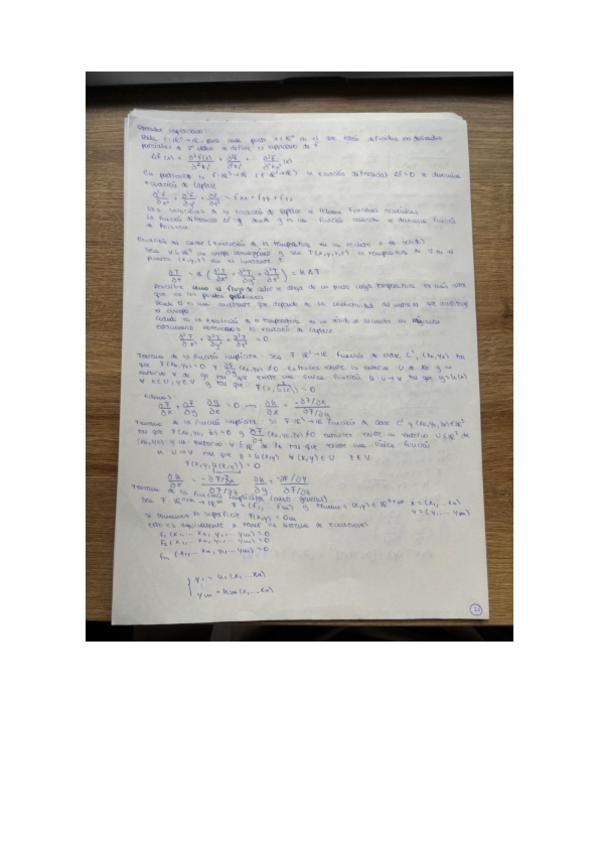 Operador laplaciano:
Dada f: ℝⁿ → ℝ, para cada punto x ∈ ℝⁿ en el que estén definidas las derivadas
parciales de 2º orden se define el laplaciano de f
Δf(x) = ∂²f(x)/∂²x₁² + ∂²f/ + ∂²f/∂²xₙ² (x)
En particular si f: ℝ³ → ℝ la ecuación diferencial Δf = 0 se denomina
ecuación de Laplace
∂²f/∂x² + ∂²f/∂y² + ∂²f/∂z² = fxx + fyy + fzz
Las soluciones de la ecuación de Laplace se llaman funciones armónicas
La función diferencial Δf = g donde g es una función conocida se denomina función
de Poisson
Ecuación del calor (evolución de la temperatura en un recinto o en sólido)
Sea V ⊆ ℝ³ un cuerpo homogéneo y sea T(x,y,z,t) la temperatura de V en el
punto (x,y,z) en el instante t
∂T/∂t = k (∂²T/∂x² + ∂²T/∂y² + ∂²T/∂z²) = k ΔT
Describe como el flujo de calor se aleja de un punto cuya temperatura es más alta
que en los puntos
Donde k es una constante que depende de la conductividad del material que constituye
el cuerpo
Cuando en la evolución de la temperatura en un sólido se encuentra en régimen
estacionario obtenemos la ecuación de Laplace
∂²T/∂x² + ∂²T/∂y² + ∂²T/∂z² = 0
Teorema de la función implícita: Sea F: ℝ² → ℝ función de clase C¹, (x₀, y₀) tal
que F(x₀, y₀) = 0 y ∂F/∂y (x₀, y₀) ≠ 0. Entonces existe un entorno U de x₀ y un
entorno V de y₀ tal que existe una única función h: U → V tal que y = h(x)
∀ x ∈ U, y ∈ V y tal que F(x, h(x)) = 0
∂F/∂x + ∂F/∂y ∂y/∂x = 0 → ∂h/∂x = -∂F/∂x / ∂F/∂y
Teorema de la función implícita: Si F: ℝ³ → ℝ función de clase C¹ y (x₀, y₀, z₀) ∈ ℝ³
tal que F(x₀, y₀, z₀) = 0 y ∂F/∂z (x₀, y₀, z₀) ≠ 0 entonces existe un entorno U ⊆ ℝ² de
(x₀, y₀) y un entorno V ⊆ ℝ de z₀ tal que existe una única función
h: U → V tal que z = h(x,y) ∀ (x,y) ∈ U z ∈ V
F(x, y, h(x,y)) = 0
∂h/∂x = -∂F/∂x / ∂F/∂z ∂h/∂y = -∂F/∂y / ∂F/∂z
Teorema de la función implícita (caso general)
Sea F: ℝⁿ⁺ᵐ → ℝᵐ F = (f₁, ... fₘ) y (x,y) ∈ ℝⁿ⁺ᵐ x = (x₁, ... xₙ)
y = (y₁, ... yₘ)
si tenemos la superficie F(x,y) = 0m
esto es equivalente a tener un sistema de ecuaciones
f₁(x₁, ... xₙ, y₁, ... yₘ) = 0
f₂(x₁, ... xₙ, y₁, ... yₘ) = 0
fₘ(x₁, ... xₙ, y₁, ... yₘ) = 0
{ y₁ = h₁(x₁, ... xₙ)
yₘ = hₘ(x₁, ... xₙ)